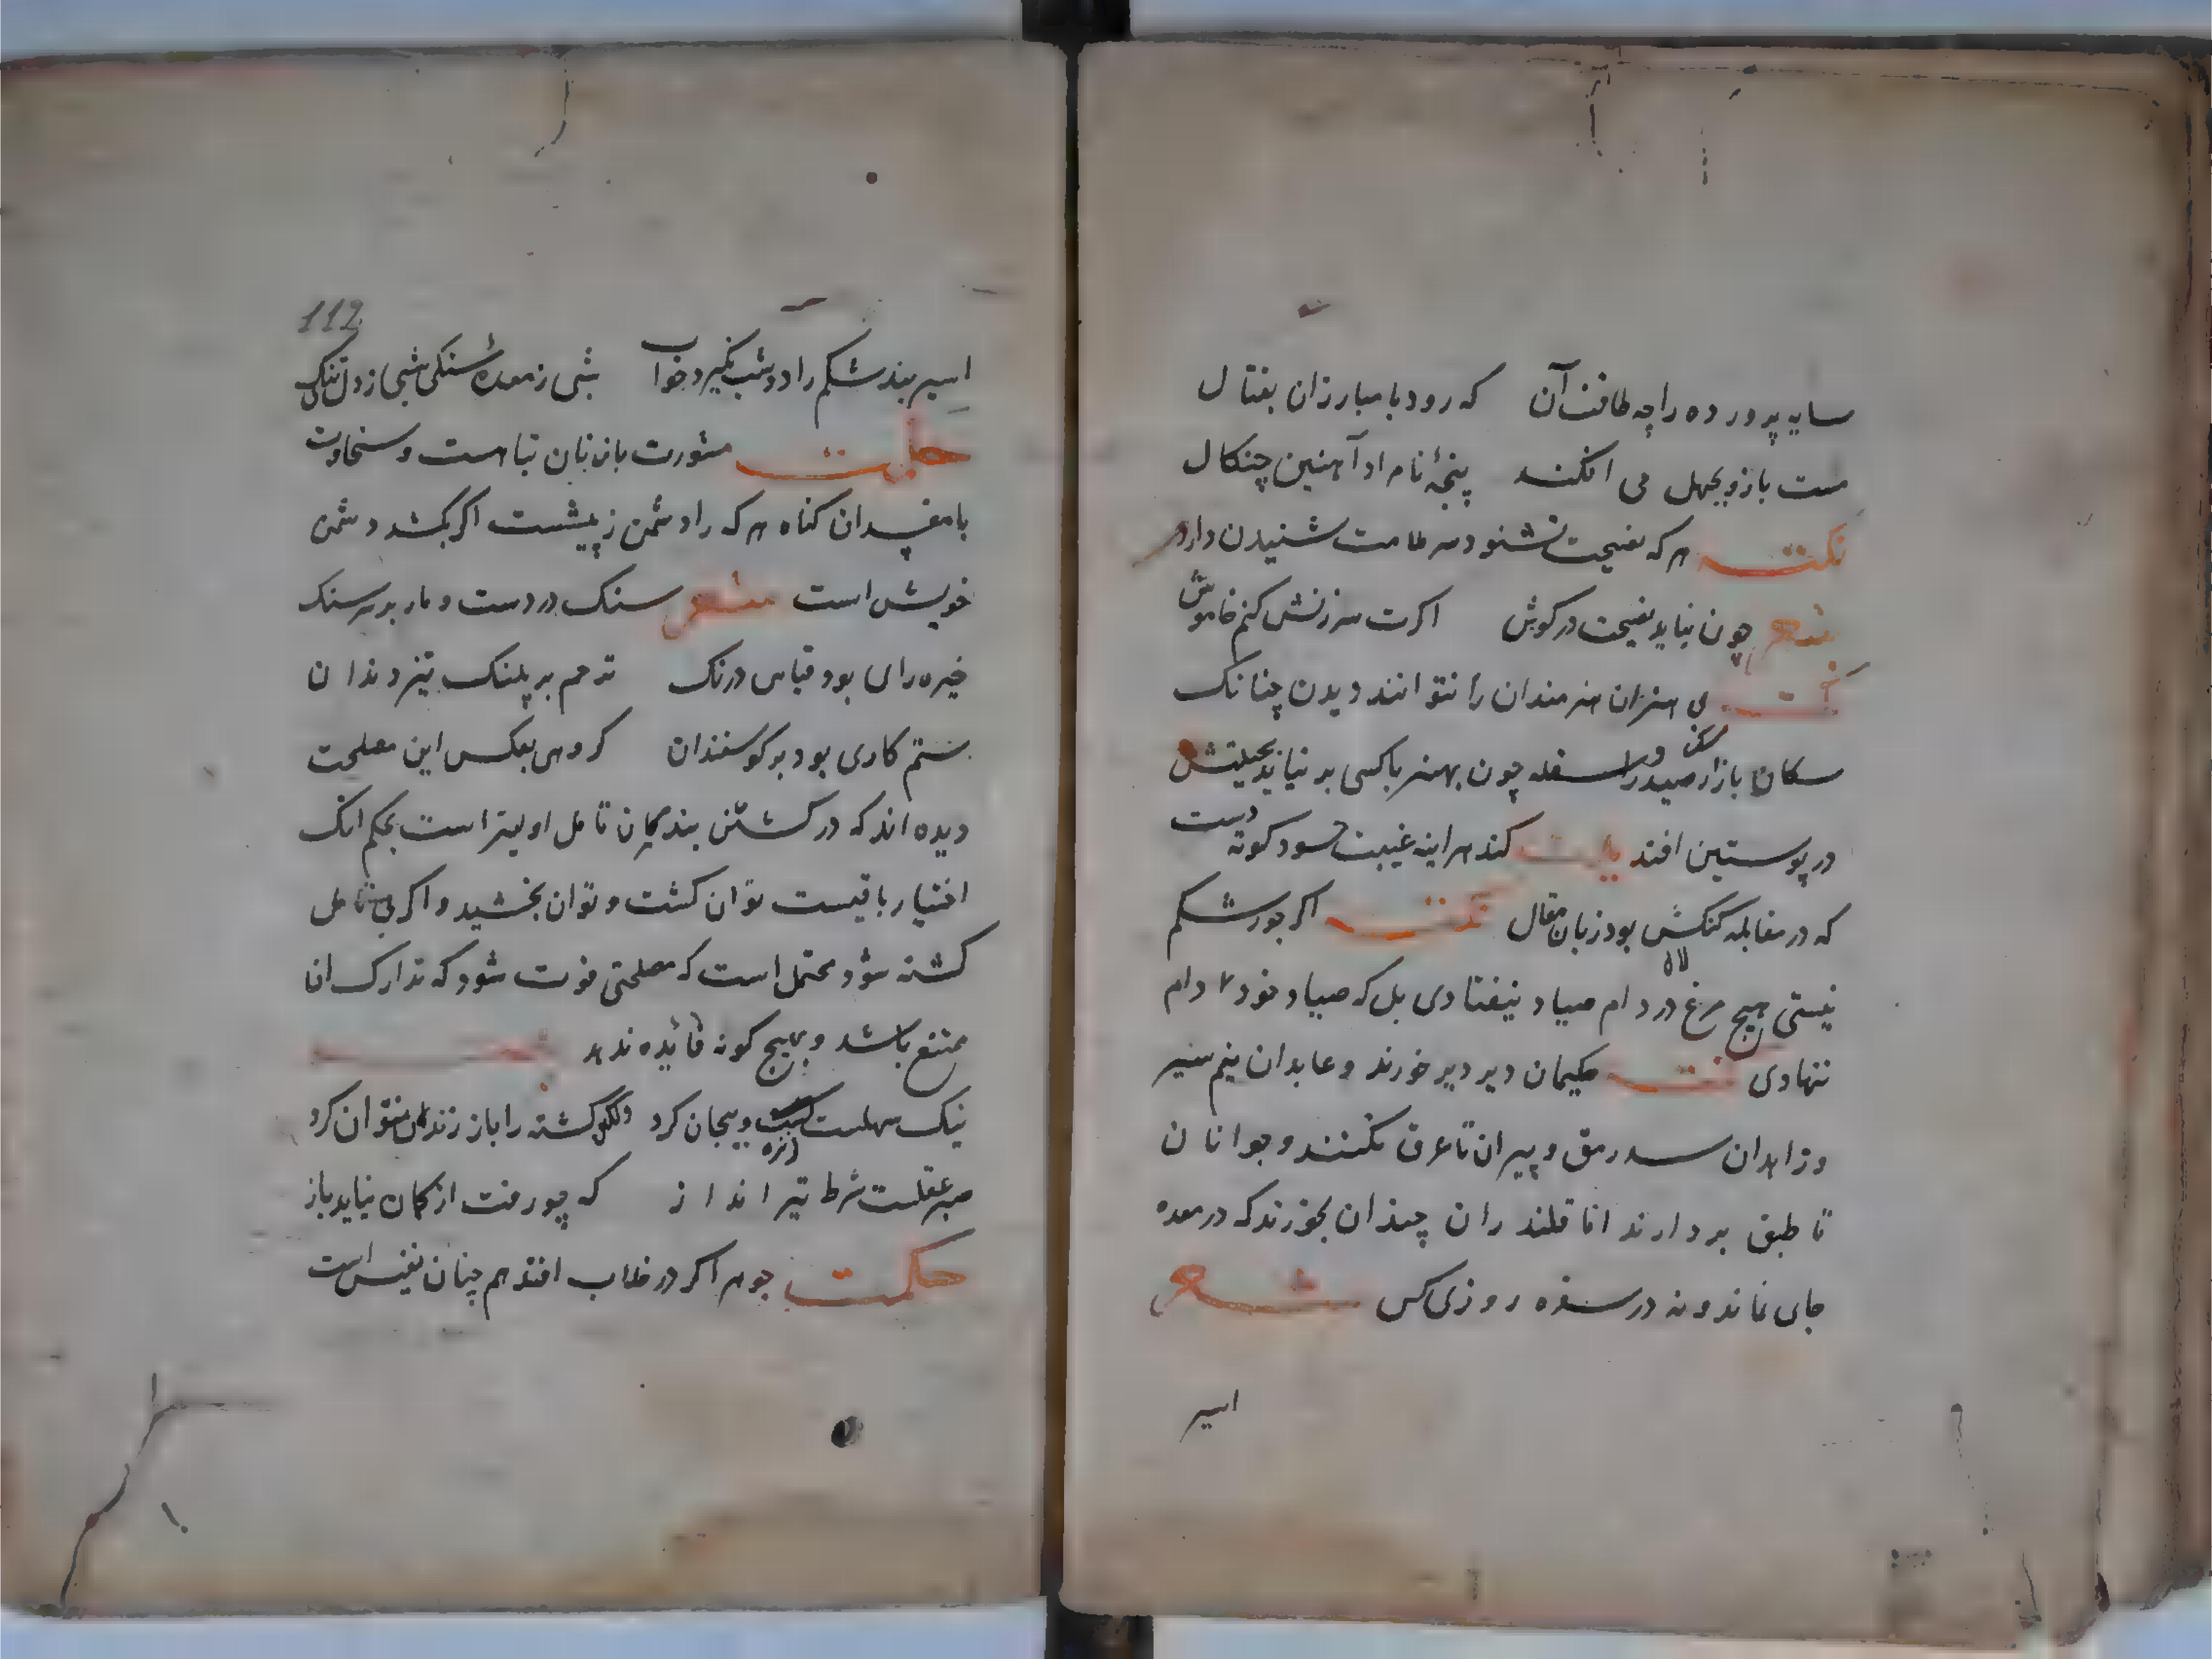 سایه پرورده را چه طاقت آن که رود با مبارزان بقتال
سست بازو بجهل می افکند پنجهٔ نام او آهنین چنکال
نکته هر که نصیحت نشنود سر ملامت شنیدن دارد
شعر چون نیاید نصیحت در کوش اکرت سرزنش کنم خاموش
بی هنران هنرمندان را نتوانند دیدن چنانک
سکان بازار سک صید را و سفله چون بهنر با کسی بر نیاید بخبثش
در پوستین افتد بیت کند هراینه غیبت حسود کوته دست
که در مقابله کنکش بود زبان مقال نکته اکر جور شکم
نیستی هیچ مرغ در دام صیاد نیفتادی بل که صیاد خود دام
ننهادی نکته حکیمان دیر دیر خورند و عابدان نیم سیر
و زاهدان سد رمق و پیران تا عرق بکنند و جوانان
تا طبق بردارند اما قلندران چندان بخورند که در معده
جای نماند و نه در سفره روزی کس شعر
اسیر
112
اسیر بند شکم را دو شب نکیرد خواب شبی ز معدهٔ سنکی شبی ز دل تنکی
حکمت مشورت با زنان تباهست و سخاوت
با مفسدان کناه هر که را دشمن ز پیشست اکر نکشد دشمن
خویش است شعر سنک در دست و مار بر سر سنک
خیره رای بود قیاس درنک ترحم بر پلنک تیز دندان
ستم کاری بود بر کوسفندان کروهی بعکس این مصلحت
دیده اند که در کشتن بندیان تامل اولیتر است بحکم انک
اختیار باقیست توان کشت و توان بخشید و اکر بی تامل
کشته شود محتمل است که مصلحتی فوت شود که تدارک انا
ممتنع باشد و بهیچ کونه فائده ندهد
نیک سهلست زنده بیجان کرد کشته را باز زنده نتوان کرد
صبر عقلست شرط تیر انداز که چو رفت از کمان نیاید باز
حکمت جوهر اکر در خلاب افتد هم چنان نفیس است